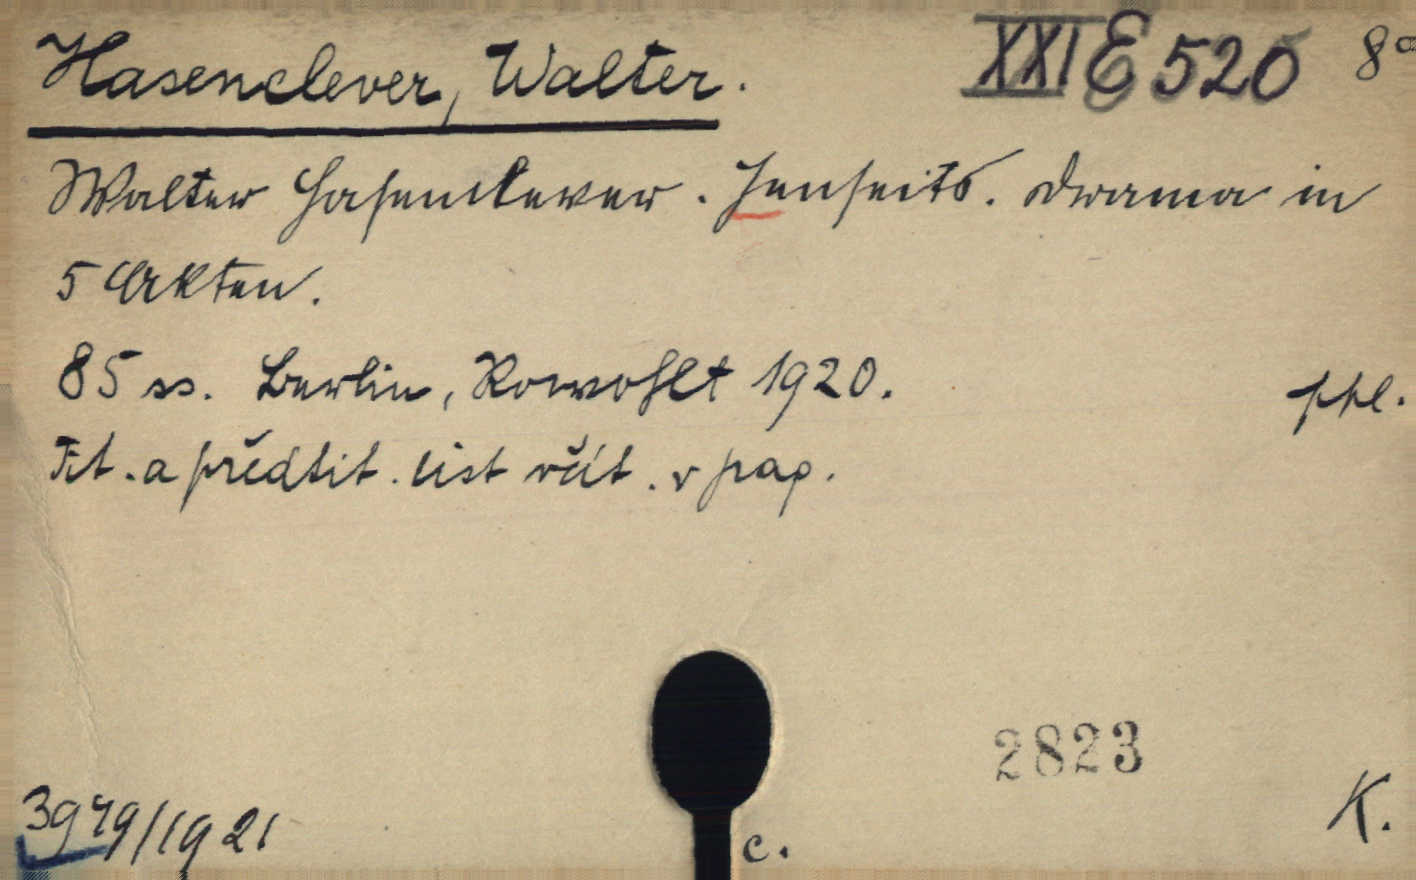 Hasenclever, Walter. XXI E 520 8°
Walter Hasenclever. Jenseits. Drama in
5 Akten.
85 ss. Berlin, Rowohlt 1920. ppl.
Tit. a předtit. list včít. v pag.
2823
3979/1921 K.
c.